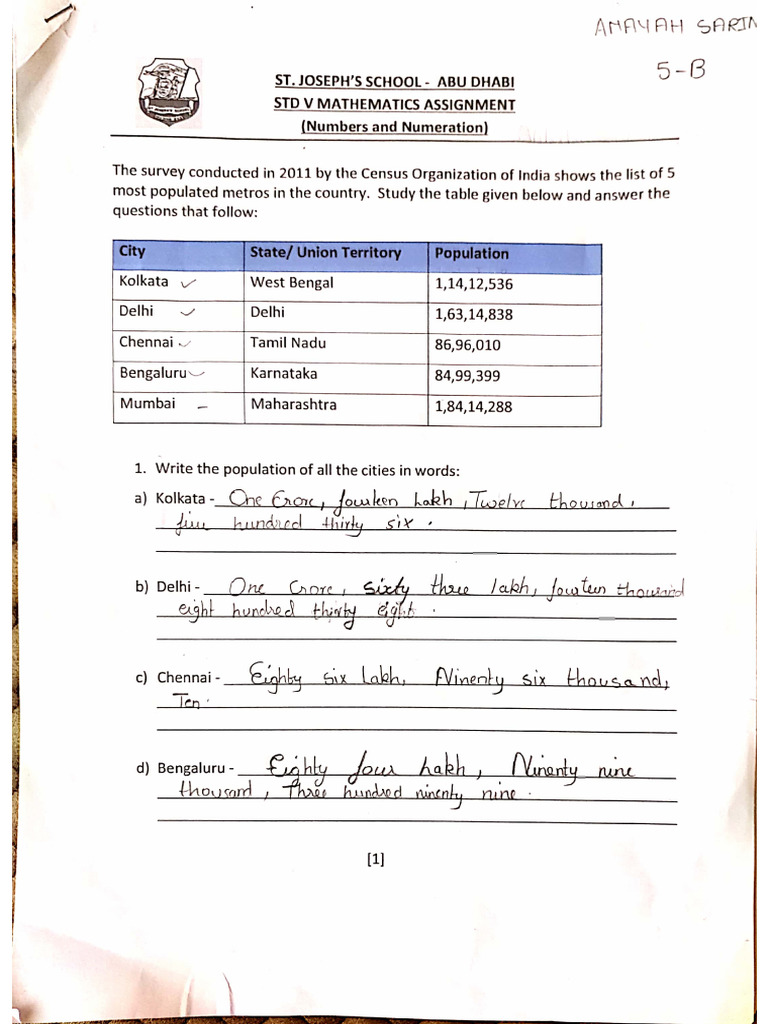 ANAYAH SARIN
5-B
ST. JOSEPH'S SCHOOL - ABU DHABI
STD V MATHEMATICS ASSIGNMENT
(Numbers and Numeration)
The survey conducted in 2011 by the Census Organization of India shows the list of 5
most populated metros in the country. Study the table given below and answer the
questions that follow:
City State/ Union Territory Population
Kolkata West Bengal 1,14,12,536
Delhi Delhi 1,63,14,838
Chennai Tamil Nadu 86,96,010
Bengaluru Karnataka 84,99,399
Mumbai Maharashtra 1,84,14,288
1. Write the population of all the cities in words:
a) Kolkata - One Crore, fourteen Lakh, Twelve thousand,
five hundred thirty six.
b) Delhi - One Crore, sixty three lakh, fourteen thousand
eight hundred thirty eight.
c) Chennai - Eighty six Lakh, Ninenty six thousand,
Ten.
d) Bengaluru - Eighty four Lakh, Ninenty nine
thousand, Three hundred ninenty nine.
[1]